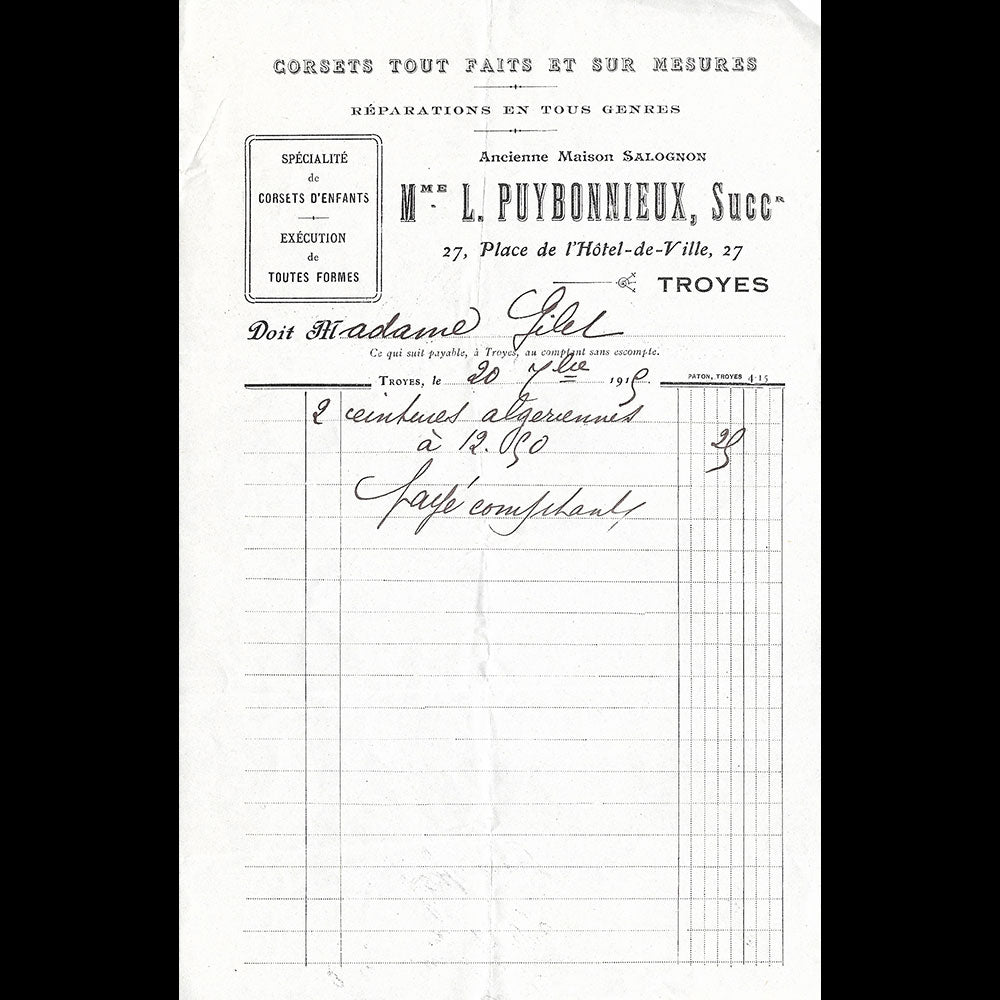 CORSETS TOUT FAITS ET SUR MESURES
RÉPARATIONS EN TOUS GENRES
SPÉCIALITÉ
de
CORSETS D'ENFANTS
EXÉCUTION
de
TOUTES FORMES
Ancienne Maison SALOGNON
MME L. PUYBONNIEUX, SuccR
27, Place de l'Hôtel-de-Ville, 27
TROYES
Doit Madame Gilet
Ce qui suit payable, à Troyes, au comptant sans escompte.
TROYES, le 20 7bre 1915
PATON, TROYES 4-15
2 ceintures algeriennes
à 12.50 25
payé comptant